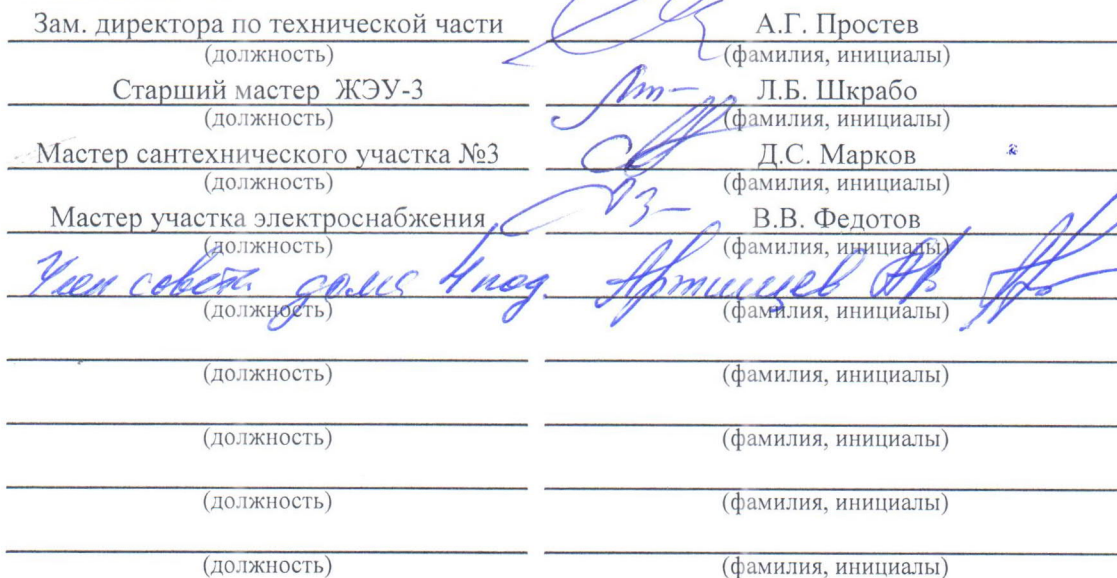 Зам. директора по технической части А.Г. Простев
(должность) (фамилия, инициалы)
Старший мастер ЖЭУ-3 Л.Б. Шкрабо
(должность) (фамилия, инициалы)
Мастер сантехнического участка №3 Д.С. Марков
(должность) (фамилия, инициалы)
Мастер участка электроснабжения В.В. Федотов
(должность) (фамилия, инициалы)
Член совета дома 4 под.
(должность) (фамилия, инициалы)
(должность) (фамилия, инициалы)
(должность) (фамилия, инициалы)
(должность) (фамилия, инициалы)
(должность) (фамилия, инициалы)